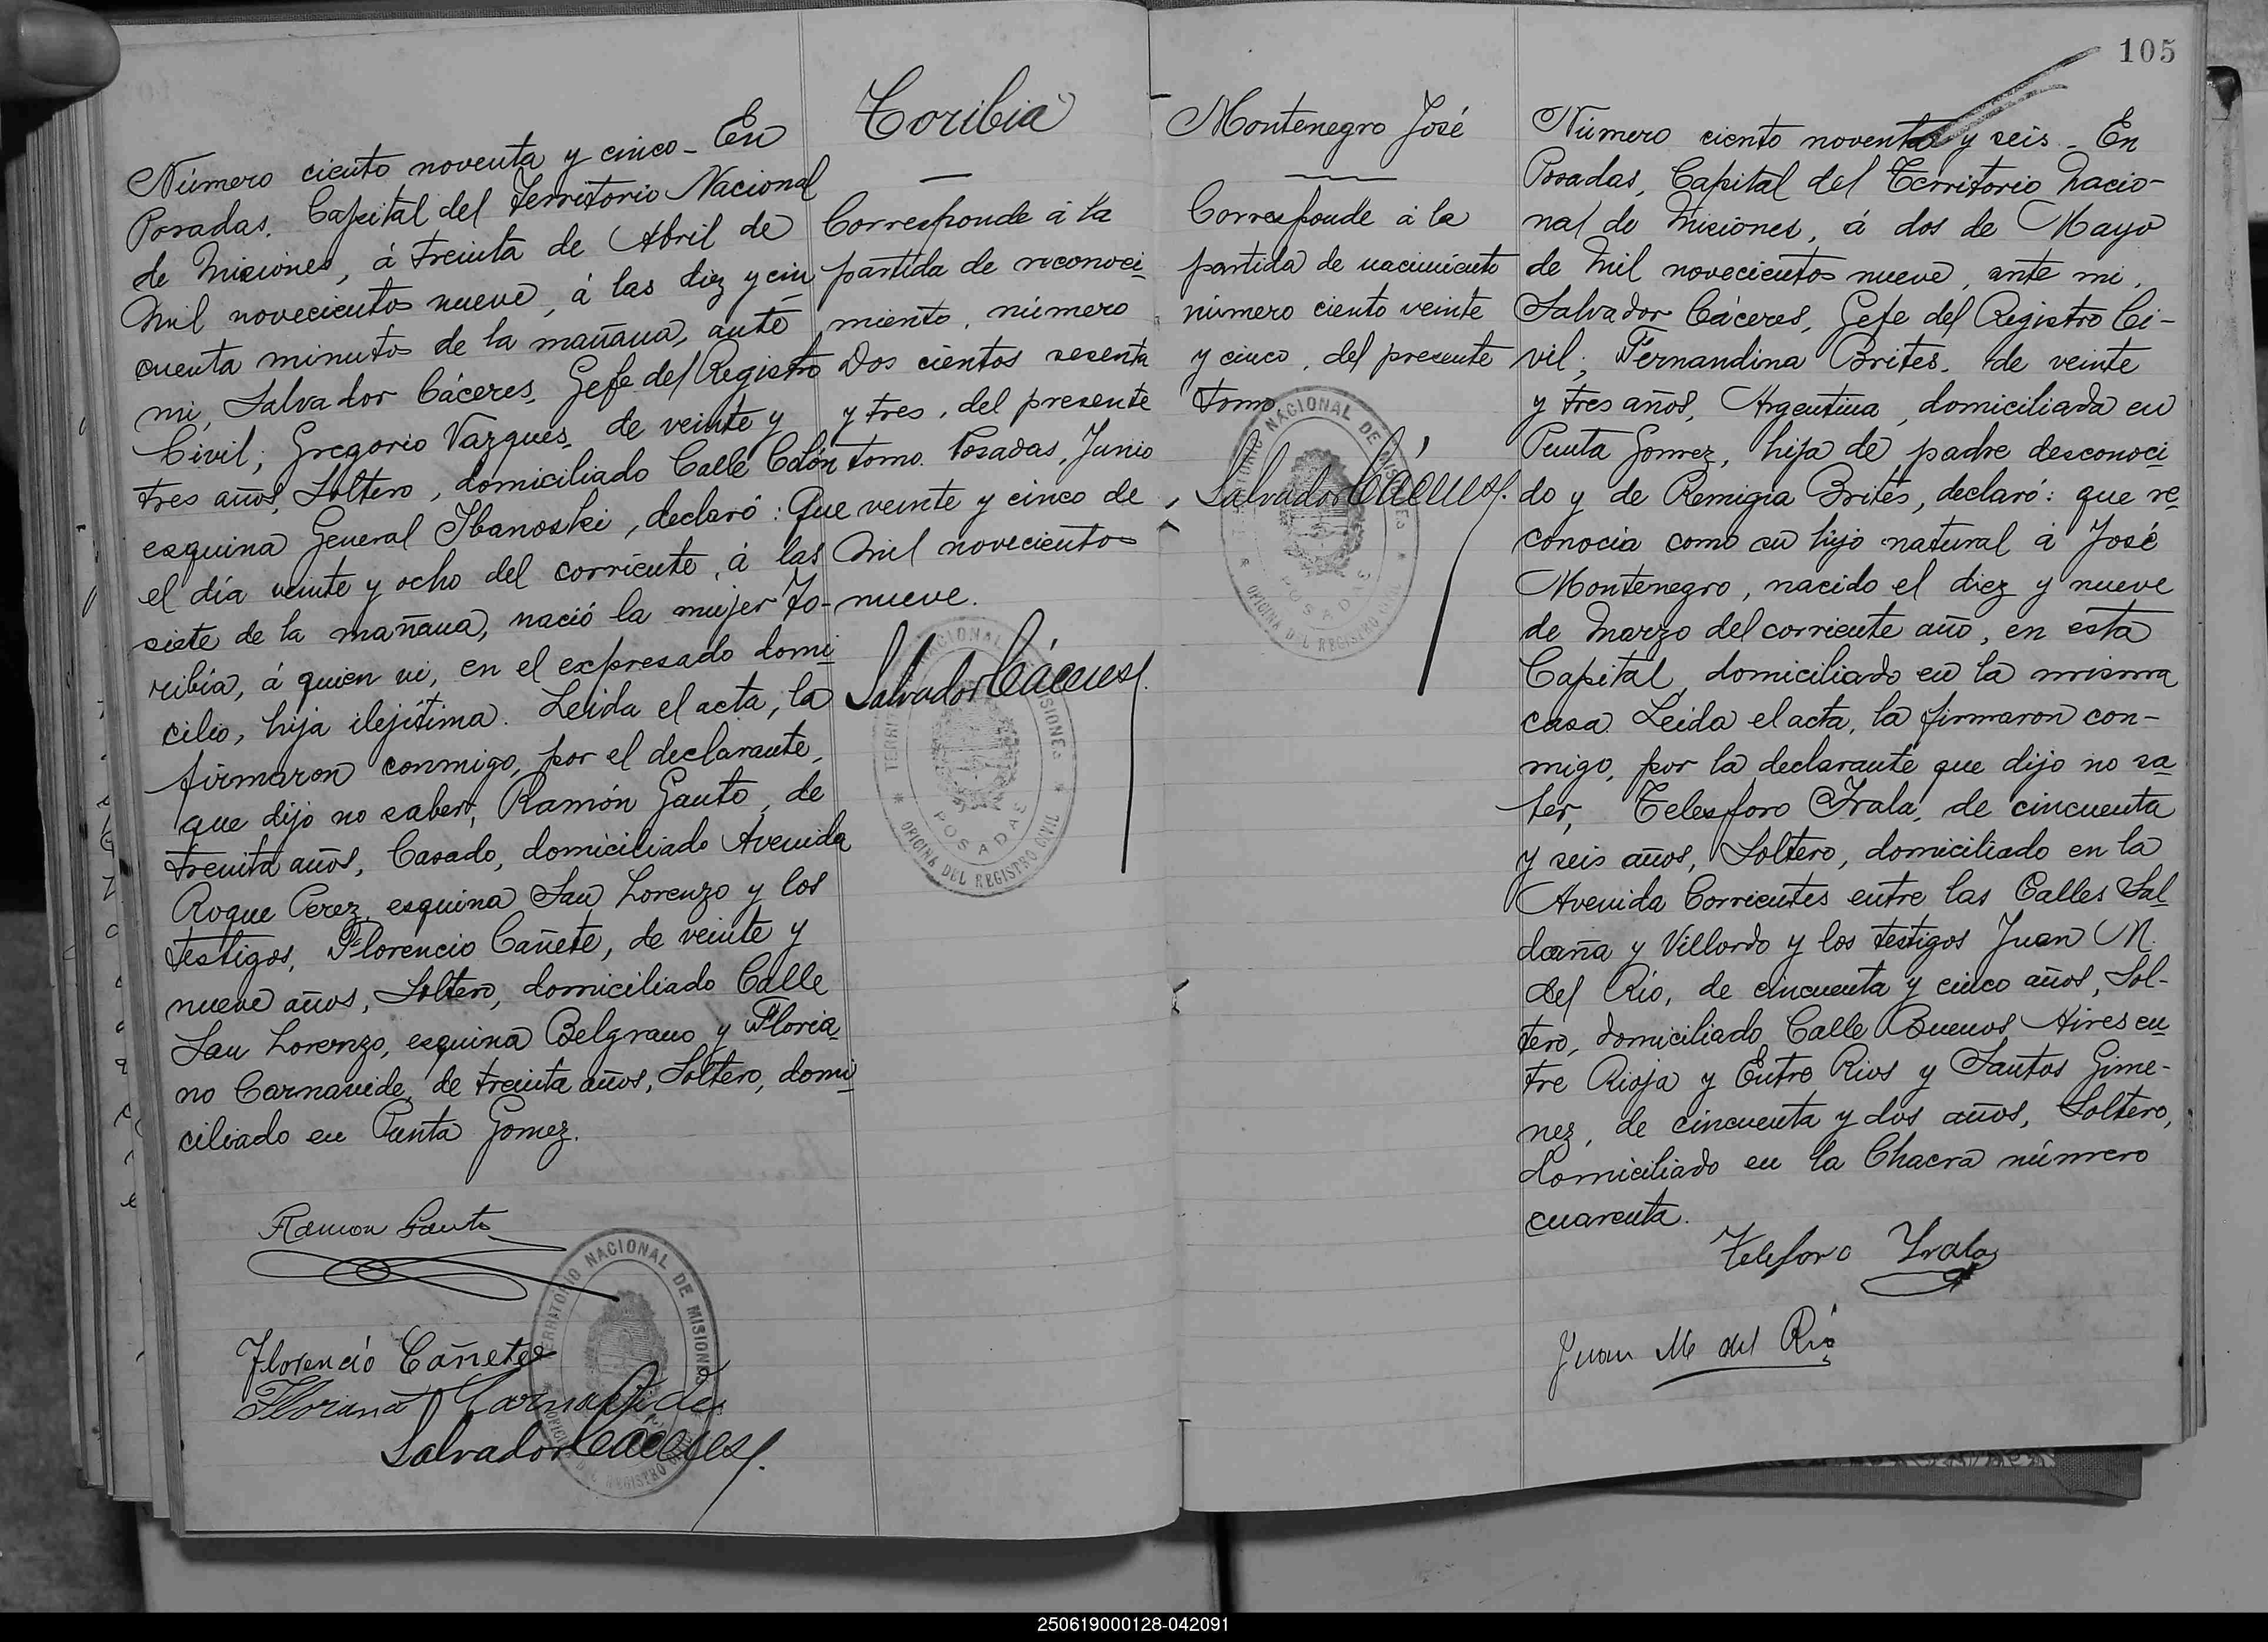 Número ciento noventa y cinco - En
Posadas, Capital del Territorio Nacional
de Misiones, á treinta de Abril de
Mil novecientos nueve, á las diez y cin
cuenta minutos de la mañana, ante
mi, Salvador Cáceres, Gefe del Registro
Civil; Gregorio Vazques, de veinte y
tres años, Soltero, domiciliado Calle Colón
esquina General Ibanoski, declaró: Que
el día veinte y ocho del corriente, á las
siete de la mañana, nació la mujer To-
ribia, á quien ví, en el expresado domi
cilio, hija ilejítima. Leida el acta, la
firmaron conmigo, por el declarante,
que dijo no saber, Ramón Gauto, de
treinta años, Casado, domiciliado Avenida
Roque Perez, esquina San Lorenzo y los
testigos, Florencio Cañete, de veinte y
nueve años, Soltero, domiciliado Calle
San Lorenzo, esquina Belgrano y Floria
no Carnavide, de treinta años, Soltero, domi
ciliado en Punta Gomez.
Ramon Gauto
Florencio Cañete
Floriano Carnavide
Salvador Cáceres
TERRITORIO NACIONAL DE MISIONES
OFICINA DEL REGISTRO CIVIL
Toribia
Corresponde á la
partida de reconoci
miento, número
Dos cientos sesenta
y tres, del presente
tomo. Posadas, Junio
veinte y cinco de
Mil novecientos
nueve.
Salvador Cáceres
TERRITORIO NACIONAL DE MISIONES
POSADAS
OFICINA DEL REGISTRO CIVIL
Montenegro José
Corresponde á la
partida de nacimiento
número ciento veinte
y cinco, del presente
tomo
Salvador Cáceres
TERRITORIO NACIONAL DE MISIONES
POSADAS
OFICINA DEL REGISTRO CIVIL
105
Número ciento noventa y seis - En
Posadas, Capital del Territorio Nacio-
nal de Misiones, á dos de Mayo
de Mil novecientos nueve, ante mi,
Salvador Cáceres, Gefe del Registro Ci-
vil; Fernandina Brites, de veinte
y tres años, Argentina, domiciliada en
Punta Gomez, hija de padre desconoci
do y de Remigia Brites, declaró: que re
conocia como su hijo natural á José
Montenegro, nacido el diez y nueve
de Marzo del corriente año, en esta
Capital, domiciliado en la misma
casa. Leida el acta, la firmaron con-
migo, por la declarante que dijo no sa
ber, Telesforo Irala, de cincuenta
y seis años, Soltero, domiciliado en la
Avenida Corrientes entre las Calles Sal
daña y Villordo y los testigos Juan M.
del Rio, de cincuenta y cinco años, Sol-
tero, domiciliado Calle Buenos Aires en
tre Rioja y Entre Rios y Santos Gime-
nez, de cincuenta y dos años, Soltero,
domiciliado en la Chacra número
cuarenta.
Telesforo Irala
Juan M del Rio
250619000128-042091